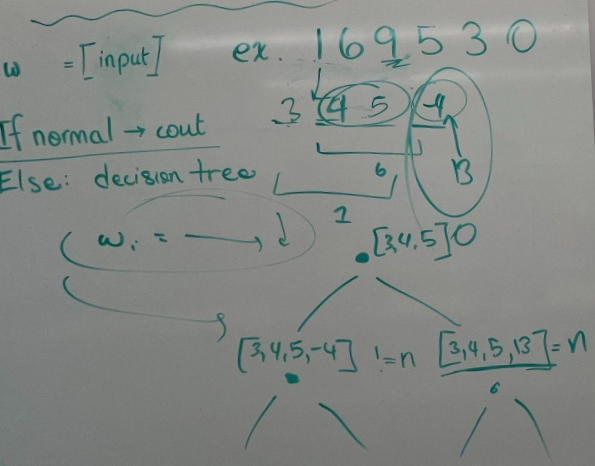 w = [input] ex. 169530
3 (4 5) -4
If normal → cout
6 13
Else: decision tree
1
( w. = → d
[3,4,5]0
[3,4,5,-4] != n [3,4,5,13] = n